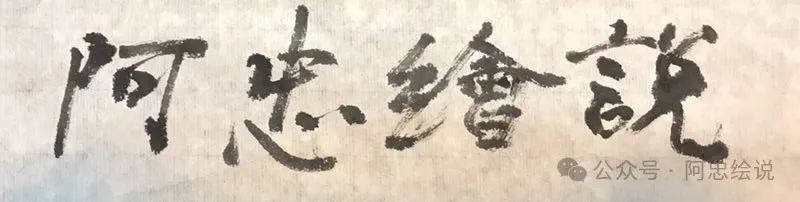 阿忠繪説
公众号 · 阿忠绘说